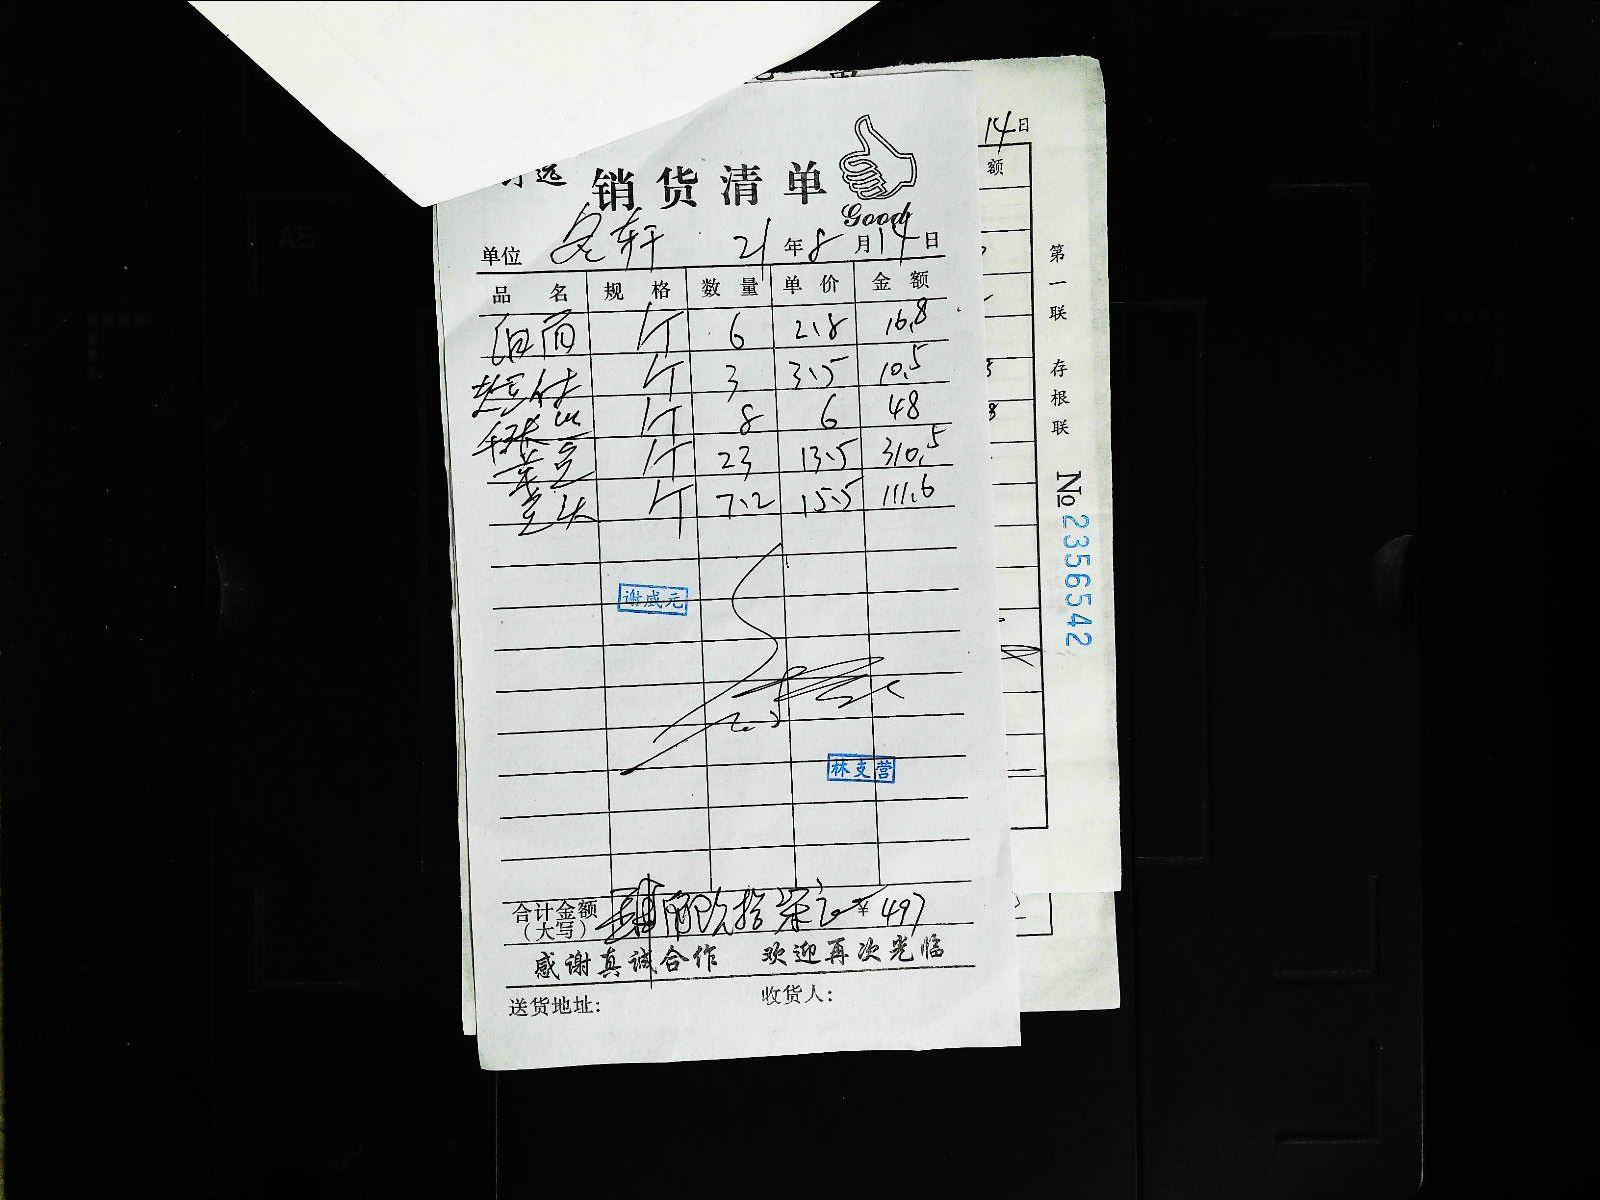 销货清单
Good
单位 名轩 21年8月14日
品名 规格 数量 单价 金额
白面 斤 6 2.8 16.8
斤 3 3.5 10.5
斤 8 6 48
斤 23 13.5 310.5
斤 7.2 15.5 111.6
谢成元
林支营
合计金额（大写） 肆佰玖拾柒元 ¥497
感谢真诚合作 欢迎再次光临
送货地址： 收货人：
14日
额
第一联 存根联
№2356542
A5